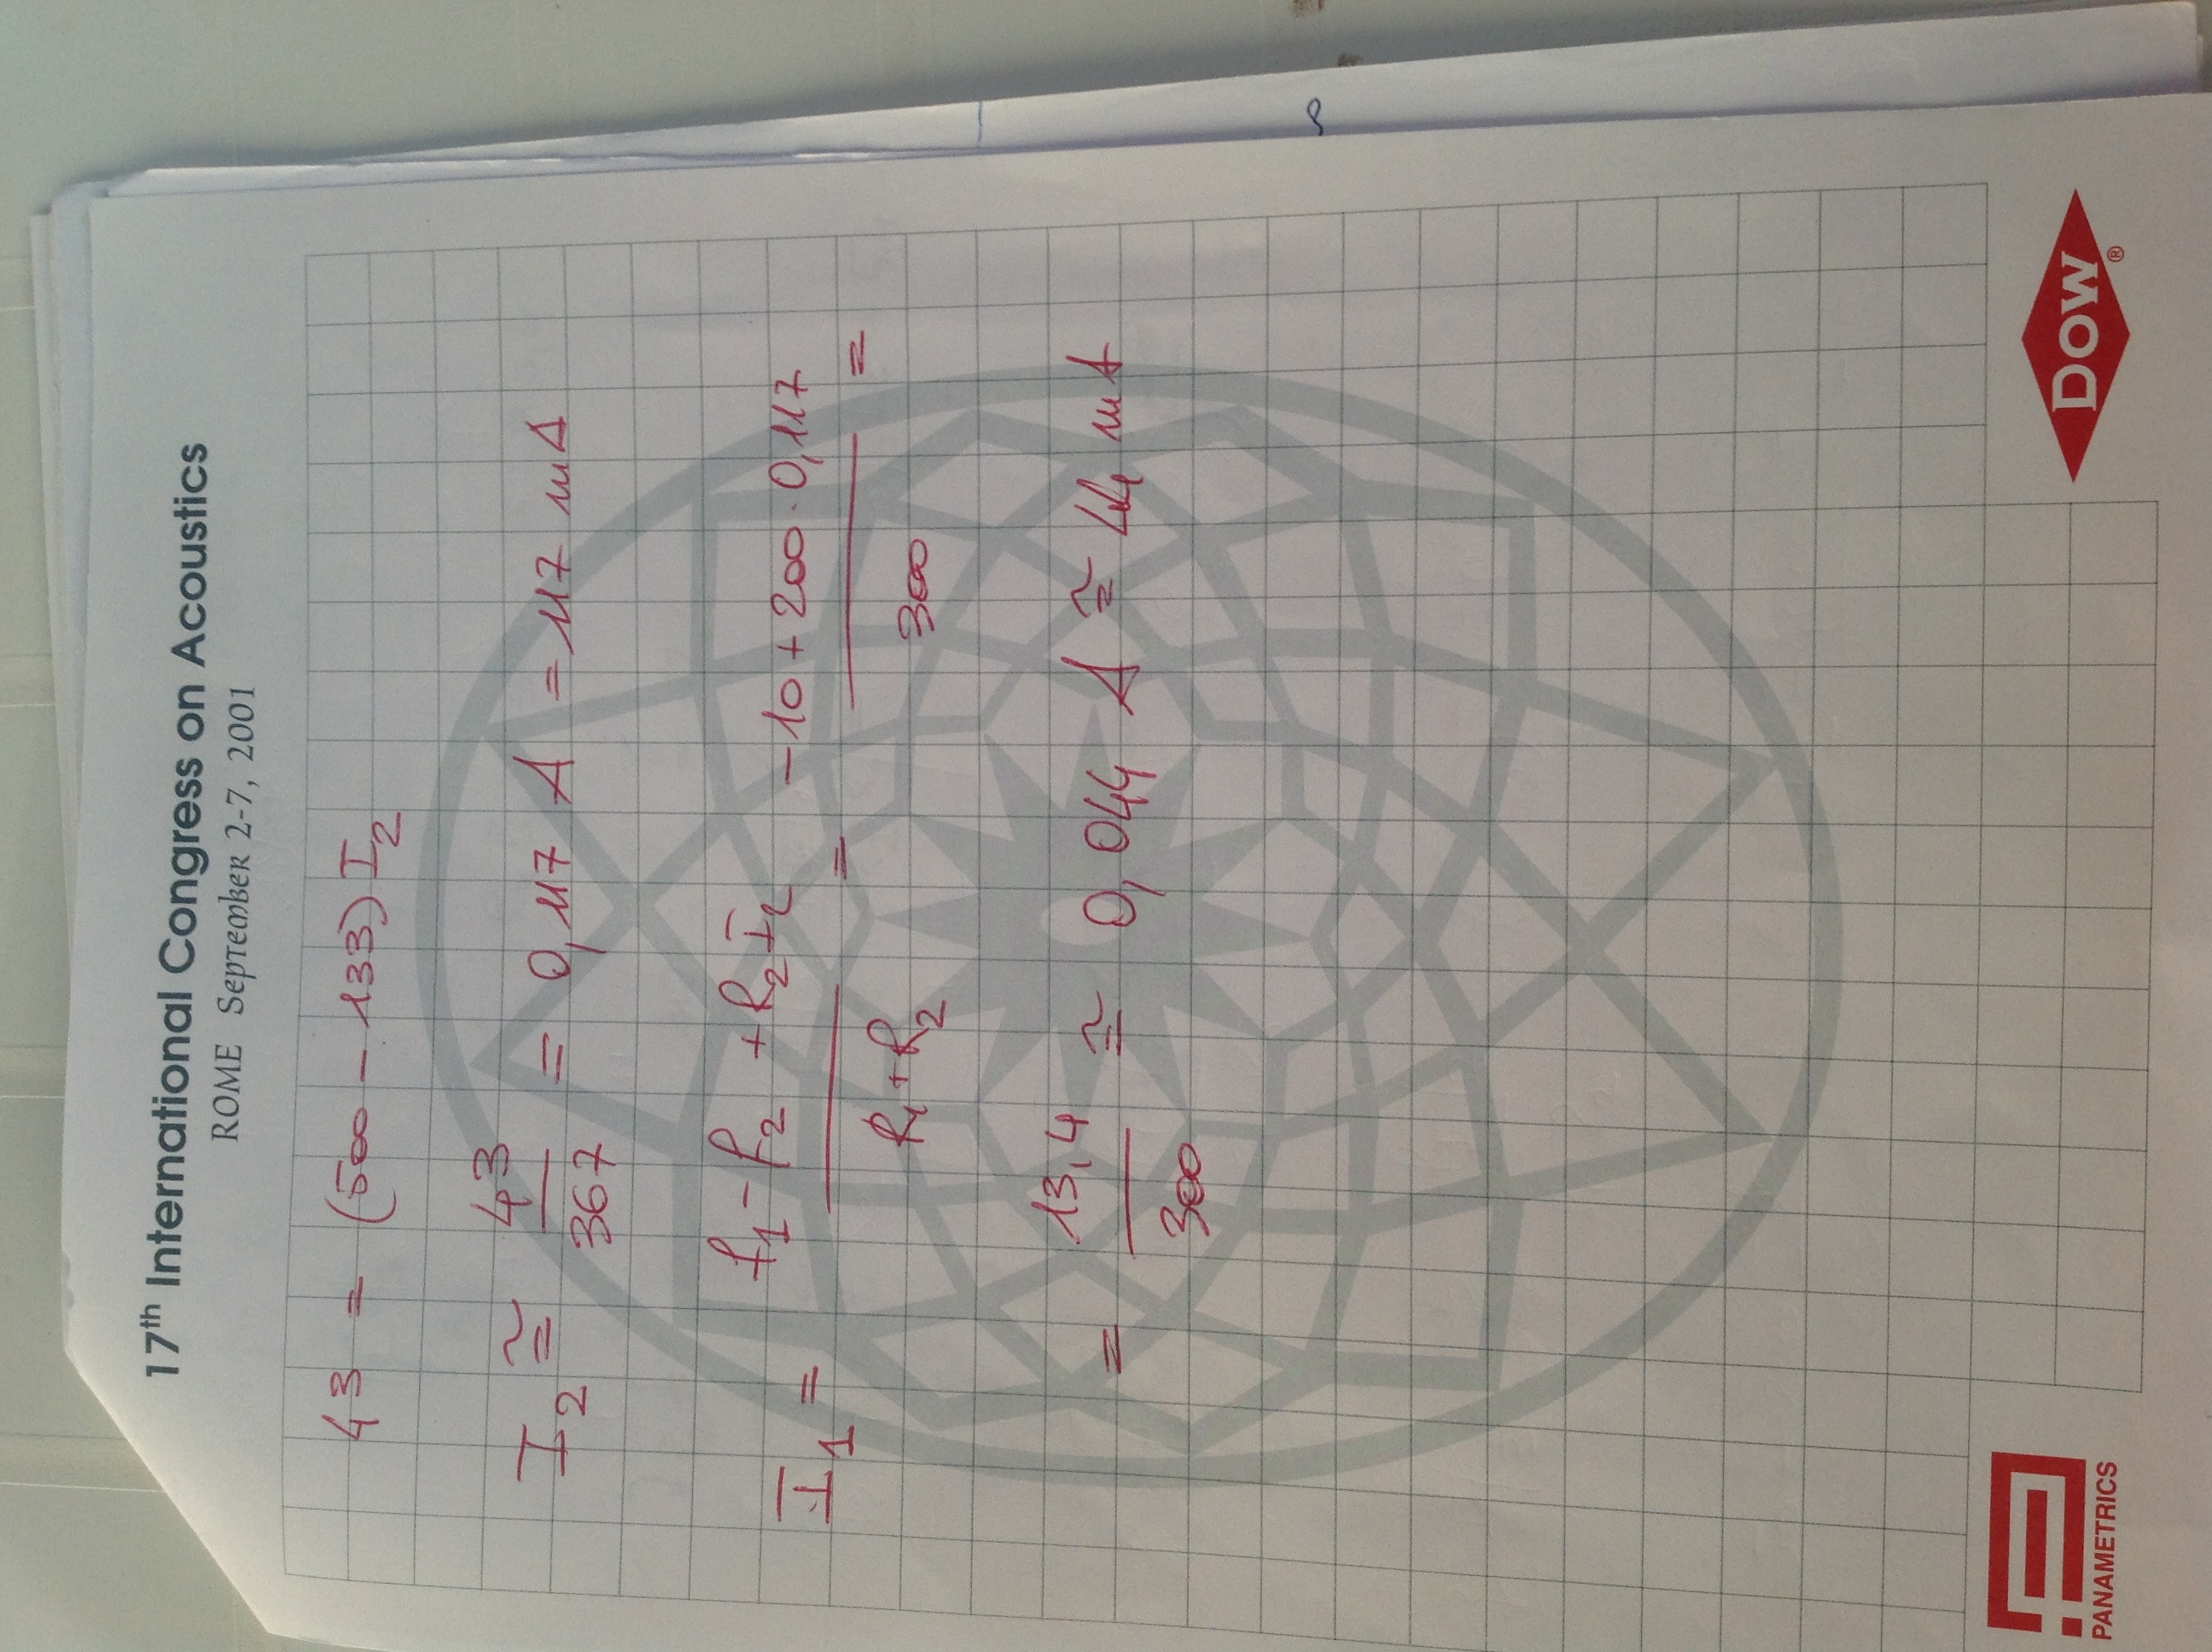 17th International Congress on Acoustics
ROME September 2-7, 2001
43 = (500 - 133) I2
I2 ≅ 43/367 = 0,117 A = 117 mA
I1 = (f1 - f2 + R2 I2)/(R1 + R2) = (-10 + 200 · 0,117)/300 =
= 13,4/300 ≅ 0,044 A ≅ 44 mA
PANAMETRICS
DOW ®